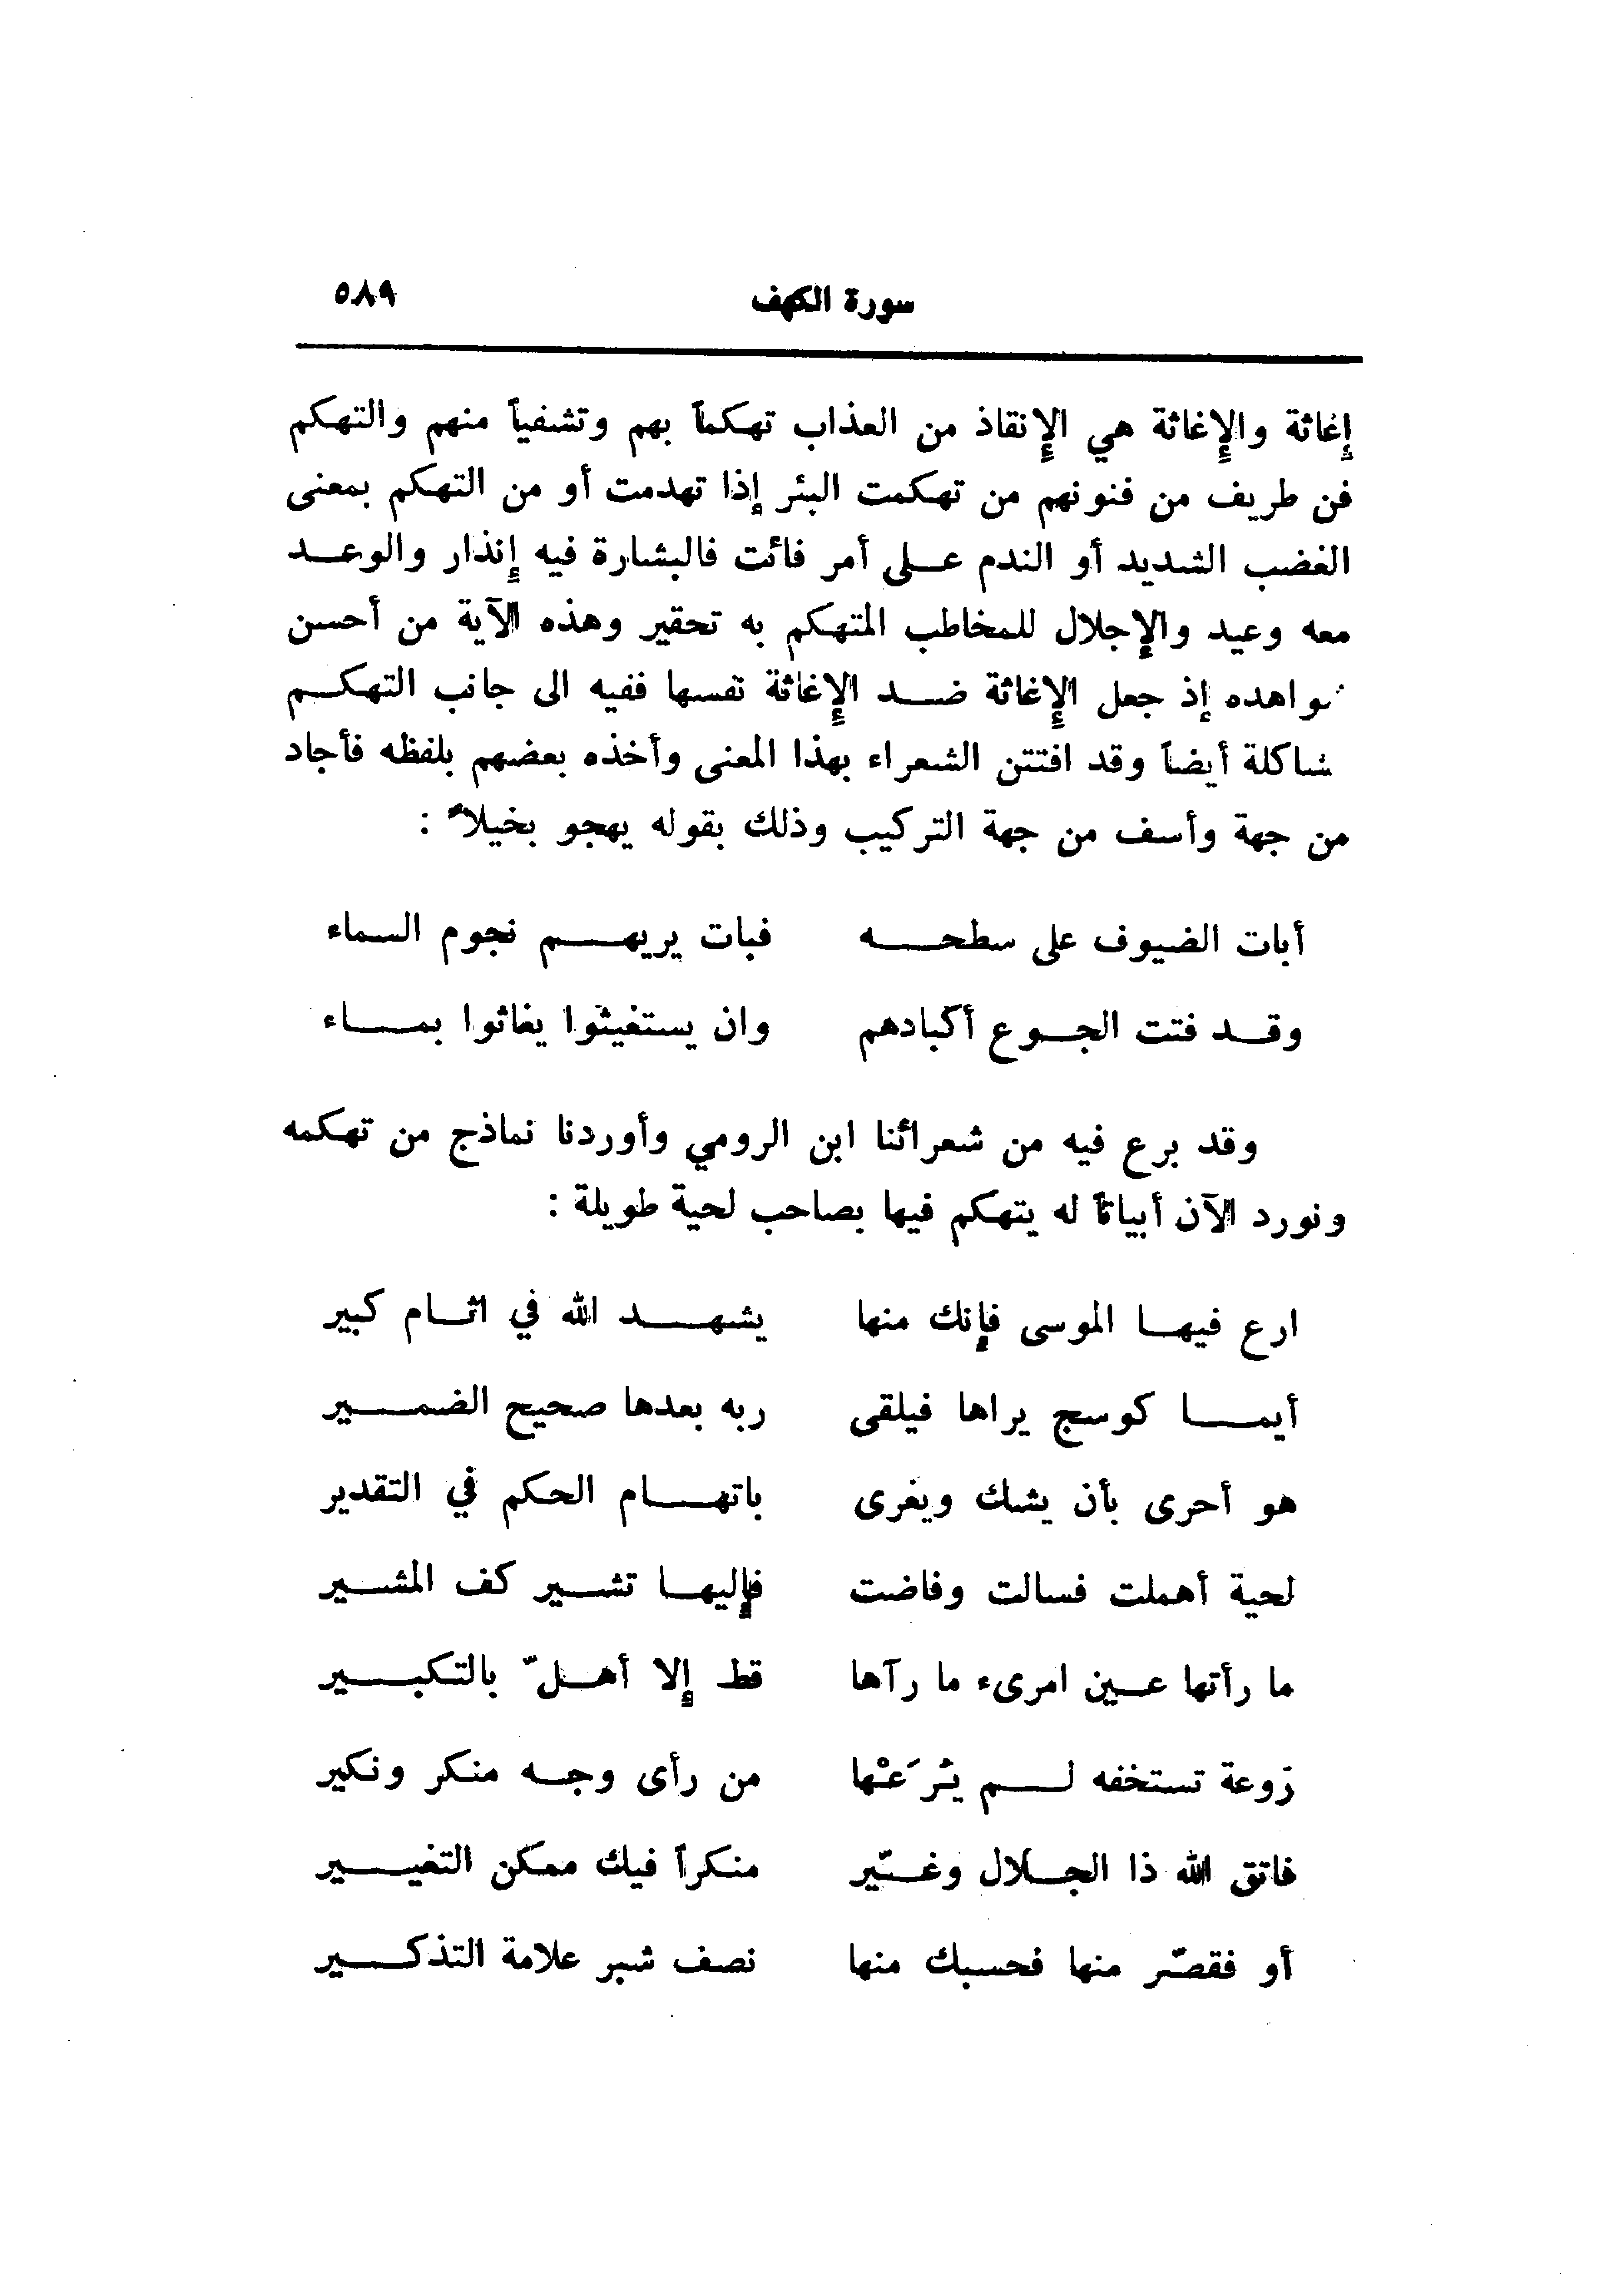 سورة الكهف ٥٨٩
إغاثة والإغاثة هي الإنقاذ من العذاب تهكماً بهم وتشفياً منهم والتهكم
فن طريف من فنونهم من تهكمت البئر إذا تهدمت أو من التهكم بمعنى
الغضب الشديد أو الندم على أمر فائت فالبشارة فيه إنذار والوعد
معه وعيد والإجلال للمخاطب المتهكم به تحقير وهذه الآية من أحسن
شواهده إذ جعل الإغاثة ضد الإغاثة نفسها ففيه الى جانب التهكم
شاكلة أيضاً وقد افتتن الشعراء بهذا المعنى وأخذه بعضهم بلفظه فأجاد
من جهة وأسف من جهة التركيب وذلك بقوله يهجو بخيلاً :
أبات الضيوف على سطحه فبات يريهم نجوم السماء
وقد فتت الجوع أكبادهم وان يستغيثوا يغاثوا بماء
وقد برع فيه من شعرائنا ابن الرومي وأوردنا نماذج من تهكمه
ونورد الآن أبياتاً له يتهكم فيها بصاحب لحية طويلة :
ارع فيها الموسى فإنك منها يشهد الله في اثام كبير
أيما كوسج يراها فيلقى ربه بعدها صحيح الضمير
هو أحرى بأن يشك ويغرى باتهام الحكم في التقدير
لحية أهملت فسالت وفاضت فإليها تشير كف المشير
ما رأتها عين امرىء ما رآها قط إلا أهلّ بالتكبير
رَوعة تستخفه لم يُرَعْها من رأى وجه منكر ونكير
فاتق الله ذا الجلال وغيّر منكراً فيك ممكن التغيير
أو فقصّر منها فحسبك منها نصف شبر علامة التذكير